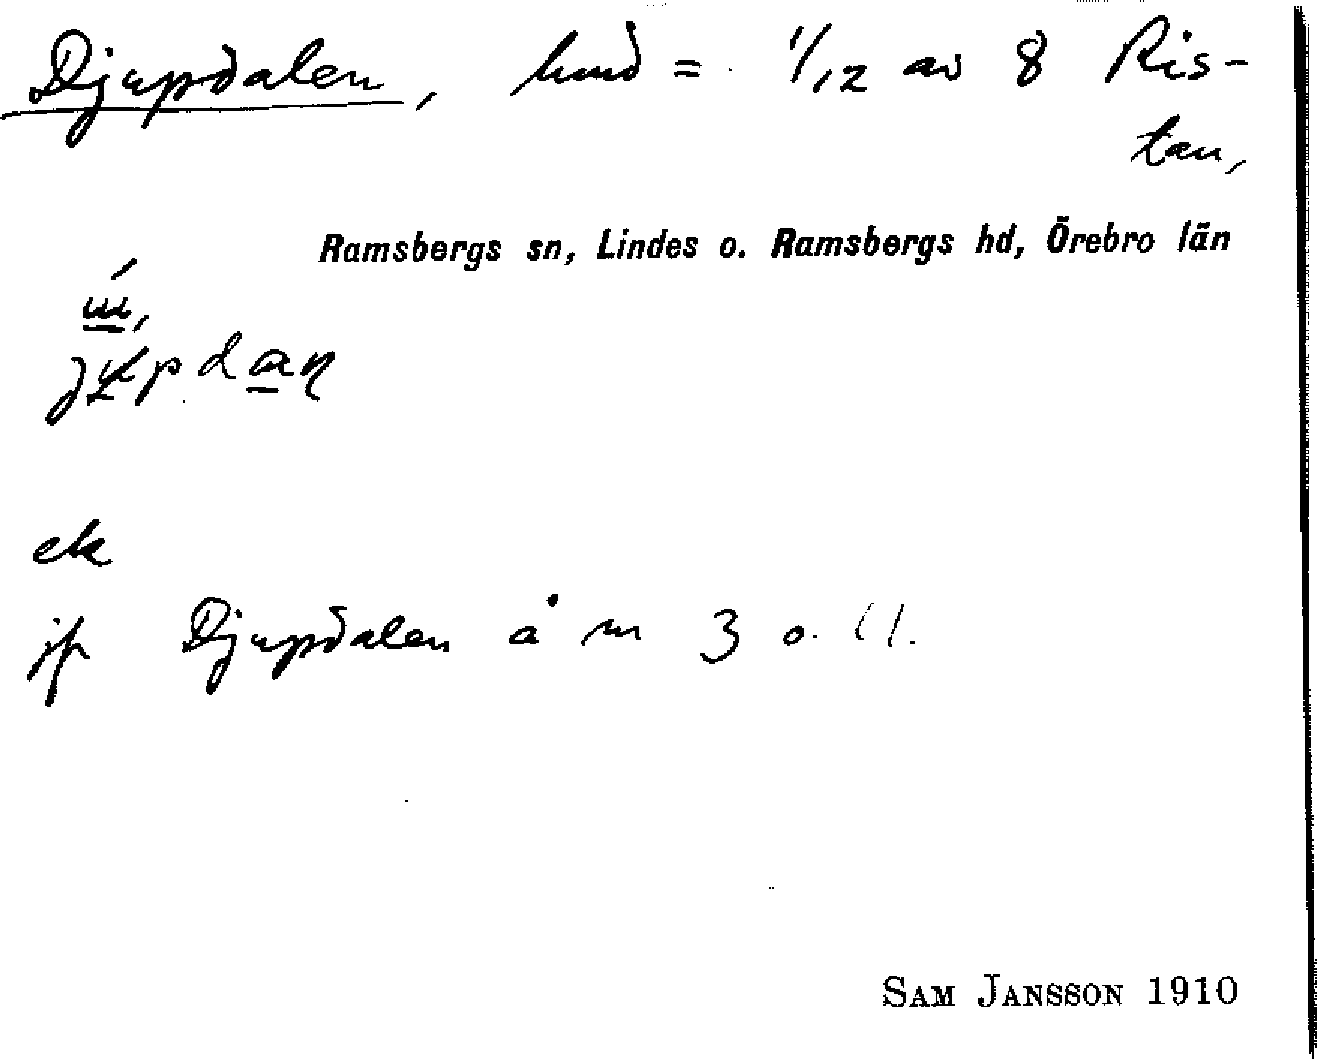 Djupdalen, hmd = 1/12 av 8 Ris-
tan,
Ramsbergs sn, Lindes o. Ramsbergs hd, Örebro län
ek
jfr Djupdalen å m 3 o. 11.
SAM JANSSON 1910